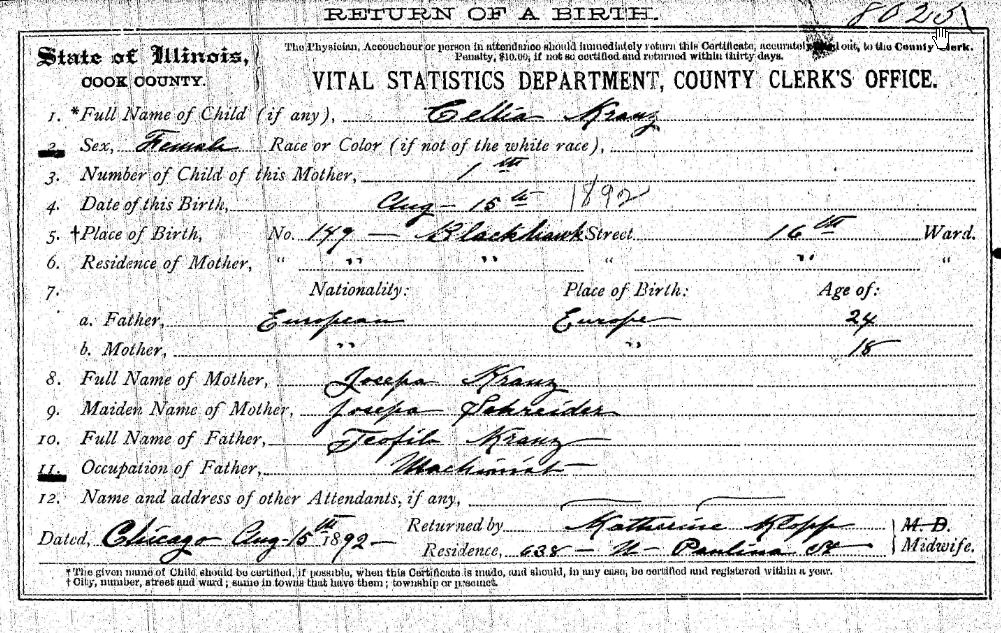 RETURN OF A BIRTH.
80251
State of Illinois,
COOK COUNTY.
The Physician, Accoucheur or person in attendance should immediately return this Certificate, accurately out, to the County Clerk.
Penalty, $10.00, if not so certified and returned within thirty days.
VITAL STATISTICS DEPARTMENT, COUNTY CLERK'S OFFICE.
1. *Full Name of Child (if any), Cellia Kranz
2. Sex, Female Race or Color (if not of the white race),
3. Number of Child of this Mother, 1th
4. Date of this Birth, Aug - 15th 1892
5. †Place of Birth, No. 149 — Blackhawk Street 16th Ward.
6. Residence of Mother, " " " " " "
7. Nationality: Place of Birth: Age of:
a. Father, European Europe 24
b. Mother, " " 18
8. Full Name of Mother, Josepa Kranz
9. Maiden Name of Mother, Josepa Schreider
10. Full Name of Father, Teofil Kranz
11. Occupation of Father, Machinist
12. Name and address of other Attendants, if any,
Dated, Chicago Aug-15th 1892- Returned by Katharine Klopp M. D.
Residence, 638 - N - Paulina St Midwife.
* The given name of Child should be certified, if possible, when this Certificate is made, and should, in any case, be certified and registered within a year.
† City, number, street and ward; same in towns that have them; township or precinct.